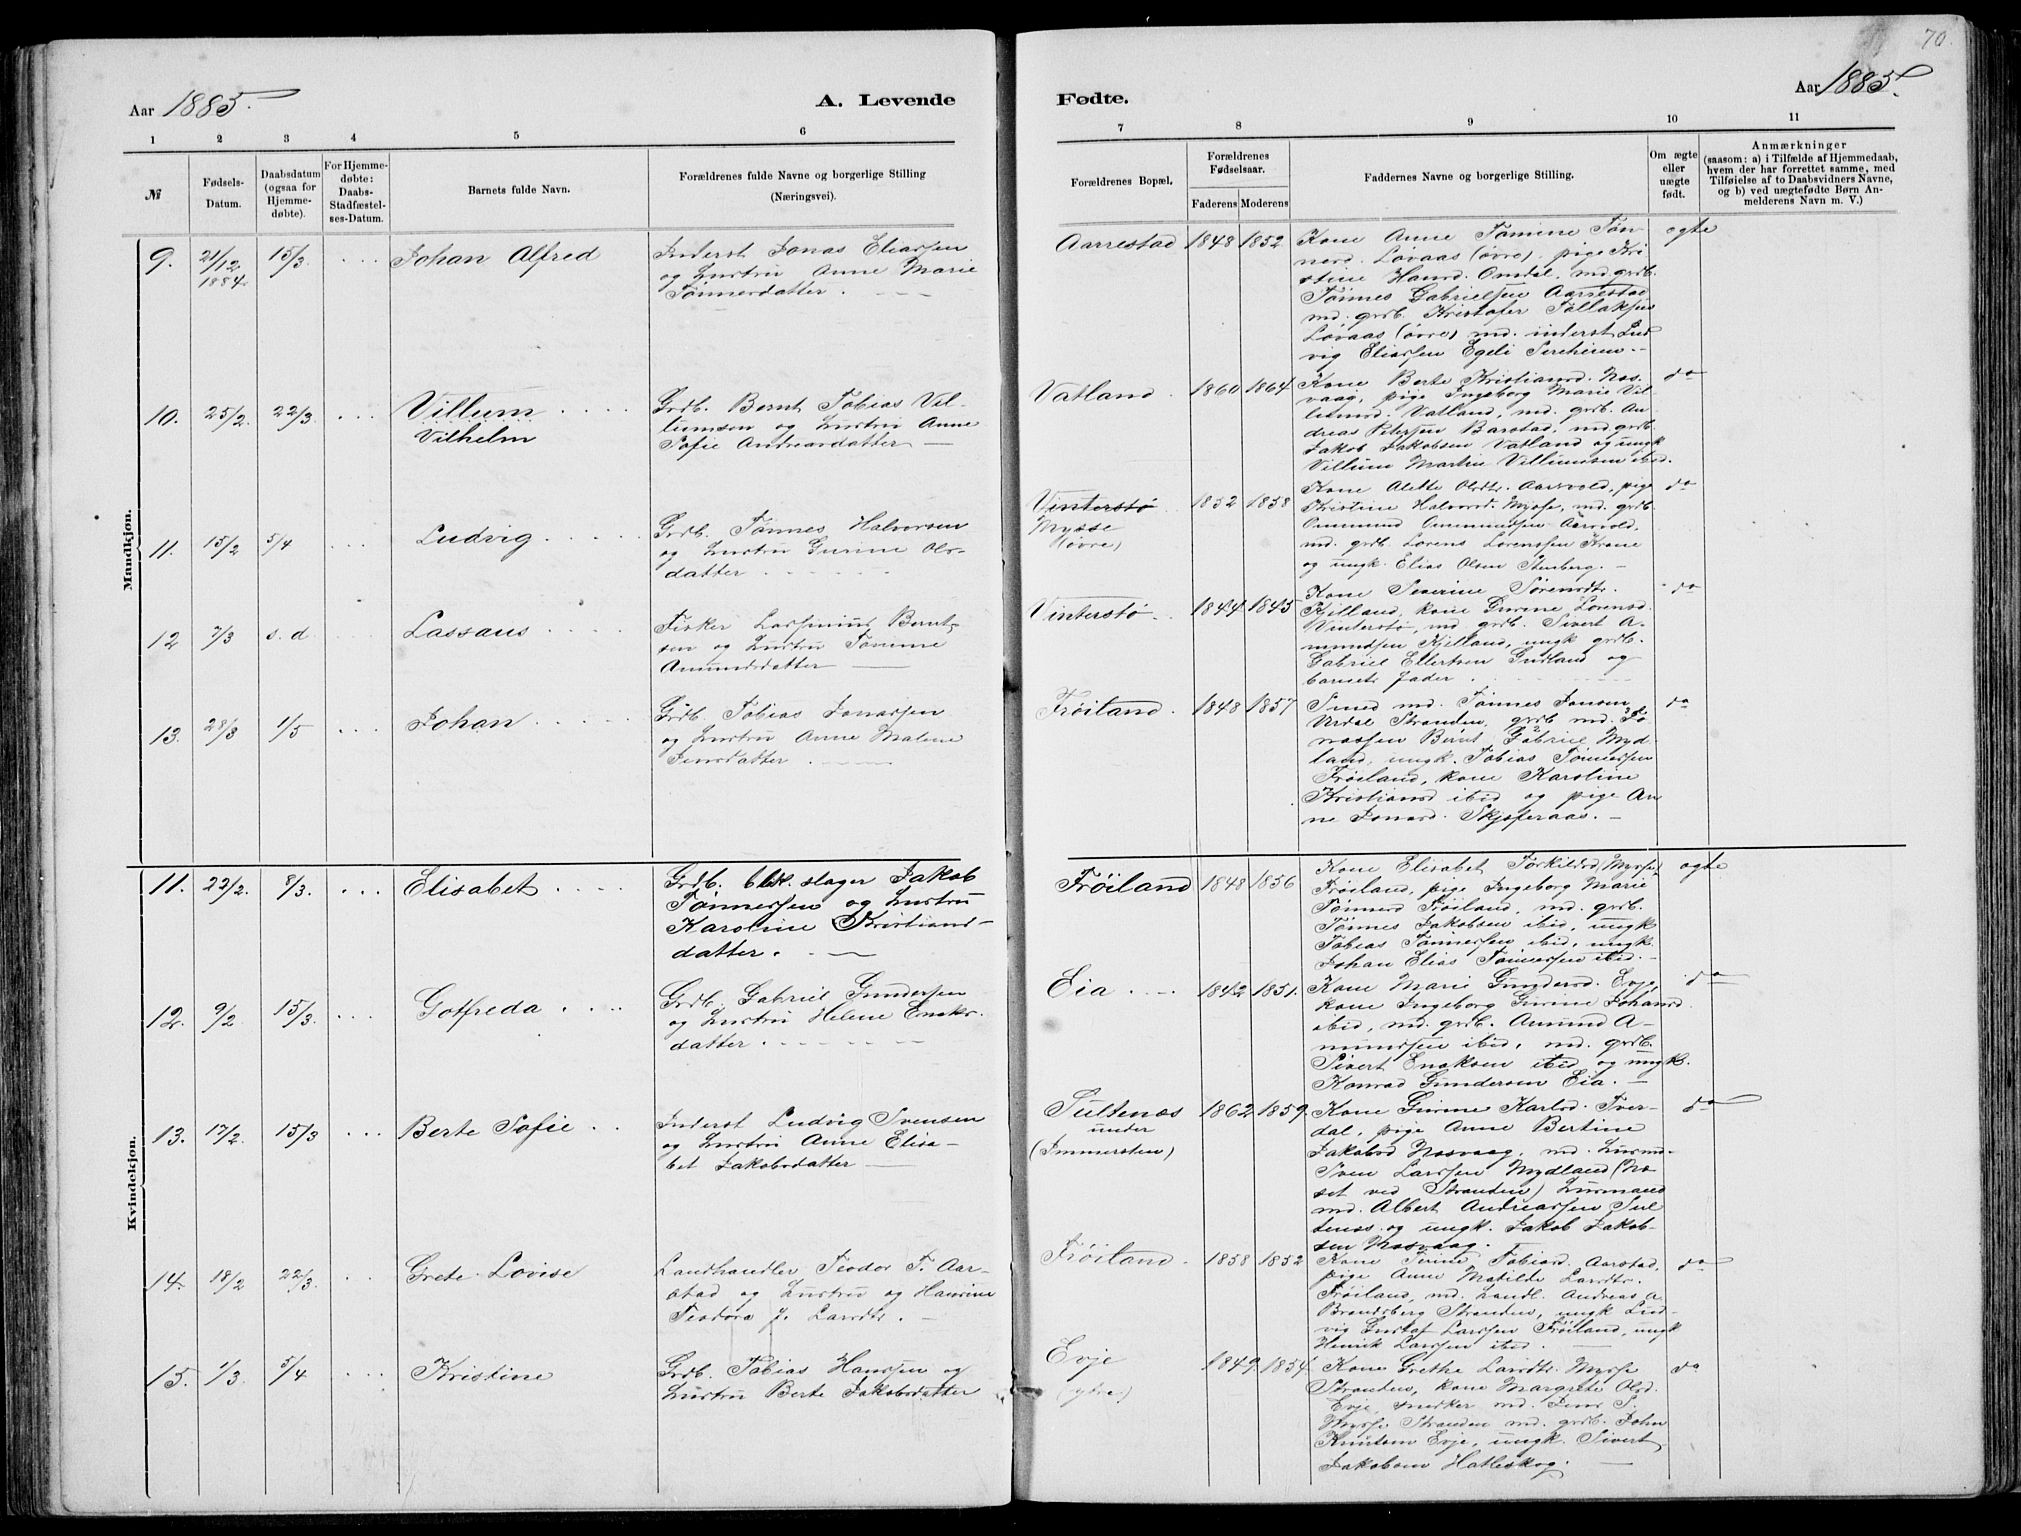 70.
Aar 1885.
A. Levende
Fødte.
Aar 1885.
1 2 3 4 5 6
7 8 9 10 11
№
Fødsels-
Datum.
Daabsdatum
(ogsaa for
Hjemme-
døbte).
For Hjemme-
døbte:
Daabs-
Stadfæstel-
ses-Datum.
Barnets fulde Navn.
Forældrenes fulde Navne og borgerlige Stilling
(Næringsvei).
Forældrenes Bopæl.
Forældrenes
Fødselsaar.
Faderens Moderens
Faddernes Navne og borgerlige Stilling.
Om ægte
eller
uægte
født.
Anmærkninger
(saasom: a) i Tilfælde af Hjemmedaab,
hvem der har forrettet samme, med
Tilføielse af to Daabsvidners Navne,
og b) ved uægtefødte Børn An-
melderens Navn m. V.)
Mandkjøn.
9. 21/12 1884. 15/3. Johan Alfred
Inderst Jonas Eliassen
og Hustru Anne Marie
Tønnesdatter.
Aarrestad 1848 1852
Kone Anne Tomine Tøn-
nesd. Løvaas (øvre), pige Kri
stine Hansd. Omdal, md. grdb.
Tønnes Gabrielsen Aarrestad
md. grdb. Kristofer Tollaksen
Løvaas (øvre) md. inderst Lud
vig Eliassen Egeli Sireheien.
ægte
10. 25/2. 22/3. Villum
Vilhelm
Grdb. Bernt Tobias Vil-
lumsen og Hustru Anne
Sofie Andreasdatter
Vatland 1860 1864
Kone Berte Kristiansd. Nos-
vaag, pige Ingeborg Marie Vil-
lumsd. Vatland, md. grdb. An
dreas Petersen Barstad, md. grdb.
Jakob Jakobsen Vatland og ungk
Villum Martin Villumsen ibid.
do
11. 15/2 5/4 Ludvig
Grdb. Tønnes Halvorsen
og Hustru Gurine Ols-
datter
Vinterstø
Mysse
(øvre)
1852 1858
Kone Alette Olsdtr. Aarsvold, pige
Kristine Halvorsd. Mysse, md. grdb.
Ommund Ommundsen Aarsvold,
md. grdb. Lorens Lorenssen Krone
og ungk. Elias Olsen Stenberg.
do
12 7/3 s. d Lassaus
Fisker Lassenius Bernt-
sen og Hustru Tomine
Amundsdatter
Vinterstø. 1844 1845
Kone Severine Sørensdtr.
Kjilland, kone Gurine Lorensd.
Vinterstø, md. grdb. Sivert A-
mundsen Kjilland, ungk grdb.
Gabriel Ellertsen Gudland og
barnets fader
do
13. 28/3 1/5 Johan
Grdb. Tobias Jonassen
og Hustru Anne Malene
Jensdatter
Frøiland. 1848 1857
Smed md. Tønnes Jonsen
Urdal Stranden, grdb md. Jo
nassen Bernt Gabriel Myd-
land, ungk. Tobias Tønnessen
Frøiland, kone Karoline
Kristiansd ibid og pige An
ne Jonasd. Skjæferaas.
do
Kvindekjøn.
11. 22/2. 8/3. Elisabet
Grdb. blik. slager Jakob
Tønnessen og Hustru
Karoline Kristians-
datter.
Frøiland 1848 1856
Kone Elisabet Torkildsd (Mysse)
Frøiland, pige Ingeborg Marie
Tønnesd Frøiland, md. grdb.
Tønnes Jakobsen ibid, ungk
Tobias Tønnessen ibid, ungk.
Johan Elias Tønnessen ibid.
ægte
12. 9/2 15/3. Gotfreda
Grdb. Gabriel Gundersen
og Hustru Helene Enoks-
datter
Eia 1842 1851.
Kone Marie Gundersd. Evje,
kone Ingeborg Gurine Johansd.
ibid, md. grdb. Amund A-
mundsen ibid, md. grdb.
Sivert Enoksen ibid og ungk.
Konrad Gundersen Eia.
do
13. 17/2. 15/3 Berte Sofie
Inderst Ludvig Svensen
og Hustru Anne Elisa-
bet Jakobsdatter
Sultenæs
under
(Immersten)
1862 1859.
Kone Gurine Karlsd. Tver-
dal, pige Anne Bertine
Jakobsd Nosvaag, md. husmd.
Sven Larssen Mydland (No-
set ved Stranden) husmand
md. Albert Andreassen Sul
tenæs og ungk. Jakob Jakob-
sen Nosvaag.
do
14. 18/2 22/3. Grete Lovise
Landhandler Teodor T. Aar-
stad og Hustru og Hansine
Teodora J. Larsdtr.
Frøiland 1858 1852
Kone Tomine Tobiasd. Aarstad,
pige Anne Matilde Larsdtr.
Frøiland, md. handl. Andreas A.
Brandsberg Stranden, ungk Lud-
vig Gustaf Larssen Frøiland, ungk
Henrik Larssen ibid.
do
15. 1/3 5/4 Kristine
Grdb. Tobias Hanssen og
Hustru Berte Jakobsdatter
Evje
(ytre)
1849 1854.
Kone Grethe Larsdtr. Mysse
Stranden, kone Margrete Olsd.
Evje, snedker md. Jens S.
Mysse Stranden md. grdb. John
Knutsen Evje, ungk. Sivert
Jakobsen Hatleskog.
do